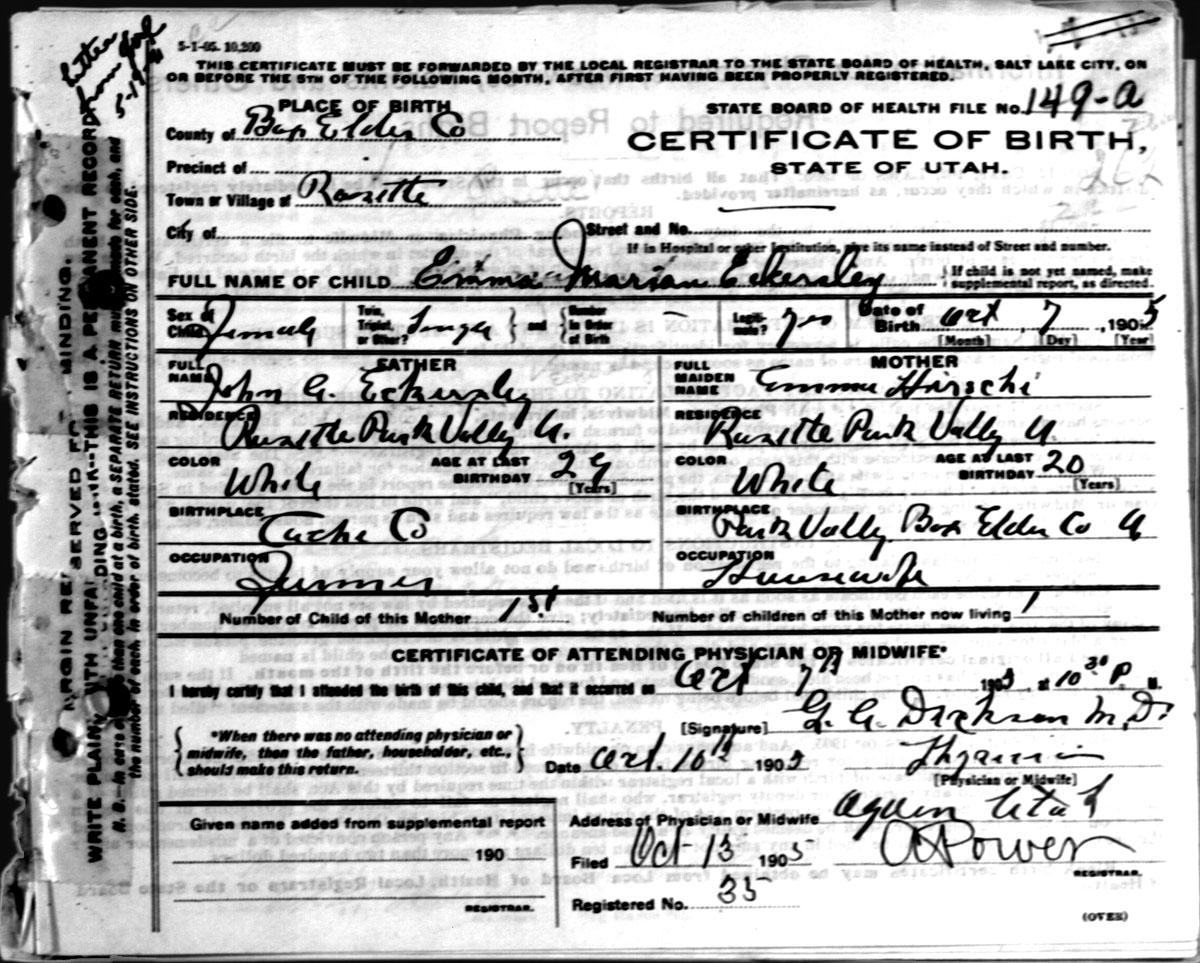 5-1-05. 10,200
THIS CERTIFICATE MUST BE FORWARDED BY THE LOCAL REGISTRAR TO THE STATE BOARD OF HEALTH, SALT LAKE CITY, ON
OR BEFORE THE 5TH OF THE FOLLOWING MONTH, AFTER FIRST HAVING BEEN PROPERLY REGISTERED.
PLACE OF BIRTH
STATE BOARD OF HEALTH FILE No. 149-a
County of Box Elder Co
CERTIFICATE OF BIRTH,
STATE OF UTAH.
Precinct of
Town or Village of Rosette
City of Street and No.
If in Hospital or other Institution, give its name instead of Street and number.
FULL NAME OF CHILD Emma Marian Eckersley } If child is not yet named, make supplemental report, as directed.
Sex of Child Female Twin, Triplet, or Other? } and { Number in Order of Birth - Legiti-mate? yes Date of Birth Oct 7, 1905
[Month] [Day] [Year]
FATHER MOTHER
FULL NAME John G. Eckersley FULL MAIDEN NAME Emma Hirschi
RESIDENCE Rosette Park Vally U. RESIDENCE Rosette Park Vally U.
COLOR White AGE AT LAST BIRTHDAY 29 [Years] COLOR White AGE AT LAST BIRTHDAY 20 [Years]
BIRTHPLACE Cache Co BIRTHPLACE Park Vally Box Elder Co U
OCCUPATION Farmer OCCUPATION Housewife
Number of Child of this Mother 1st Number of children of this Mother now living 1
CERTIFICATE OF ATTENDING PHYSICIAN OR MIDWIFE*
I hereby certify that I attended the birth of this child, and that it occurred on Oct 7th 1905, at 10 30 P. M.
{ *When there was no attending physician or midwife, then the father, householder, etc., should make this return. }
[Signature] Dickson M.D.
Date Oct. 10th 1905
[Physician or Midwife]
Given name added from supplemental report
Address of Physician or Midwife Ogden Utah
190
Filed Oct-13 1905 Power
REGISTRAR.
Registered No. 35
REGISTRAR.
(OVER)
MARGIN RESERVED FOR BINDING.
WRITE PLAINLY WITH UNFADING INK--THIS IS A PERMANENT RECORD.
N. B.--In case of more than one child at a birth, a SEPARATE RETURN must be made for each, and
the number of each, in order of birth, stated. SEE INSTRUCTIONS ON OTHER SIDE.